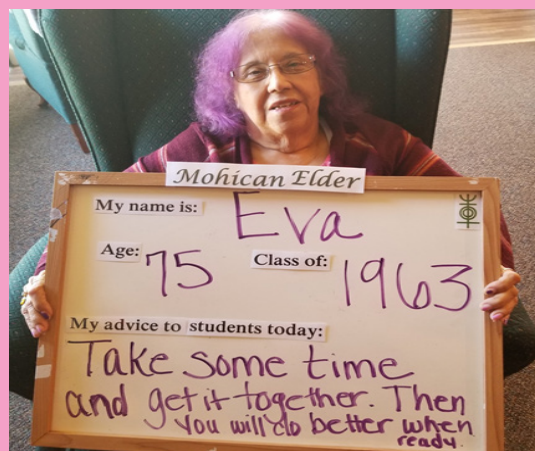 Mohican Elder
My name is: Eva
Age: 75 Class of: 1963
My advice to students today:
Take some time
and get it together. Then
you will do better when
ready.